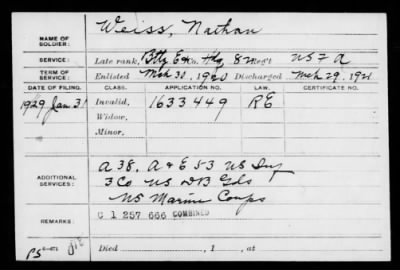 NAME OF SOLDIER: Weiss, Nathan
SERVICE: Late rank, Btty E & Co. Hdq 82 Reg't US F A
TERM OF SERVICE: Enlisted Mch 30, 1920 Discharged Mch 29, 1921
DATE OF FILING. CLASS. APPLICATION NO. LAW. CERTIFICATE NO.
1929 Jan 31 Invalid, 1633449 RE
Widow,
Minor,
ADDITIONAL SERVICES: A 38, A & E 53 US Inf
3 Co US DB Gds
US Marine Corps
REMARKS: C 1 257 666 COMBINED
Died , 1 , at